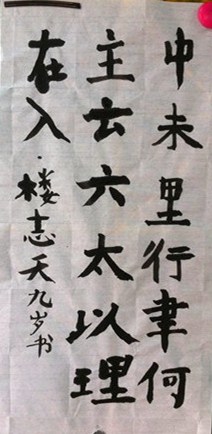 中未里行聿何
主云六太以理
在入·楼志天九岁书